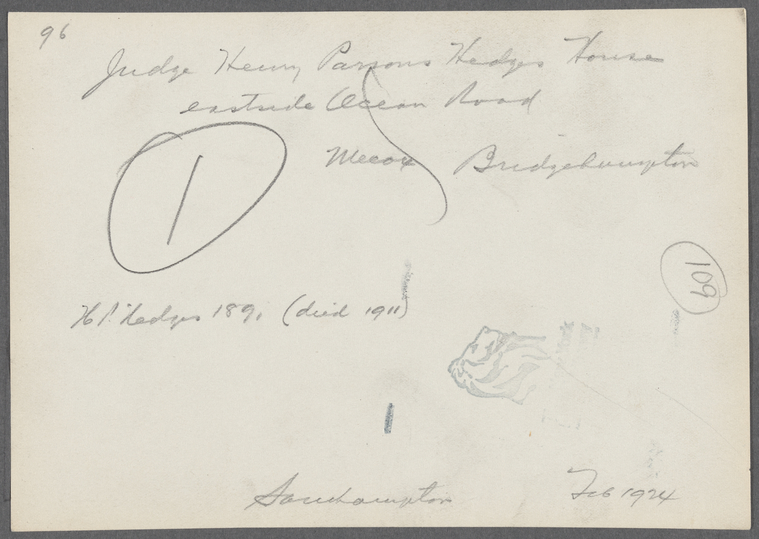 96
Judge Henry Parsons Hedges House
eastside Ocean Road
1
Mecox Bridgehampton
109
H P Hedges 1891 (died 1911)
Southampton Feb 1924